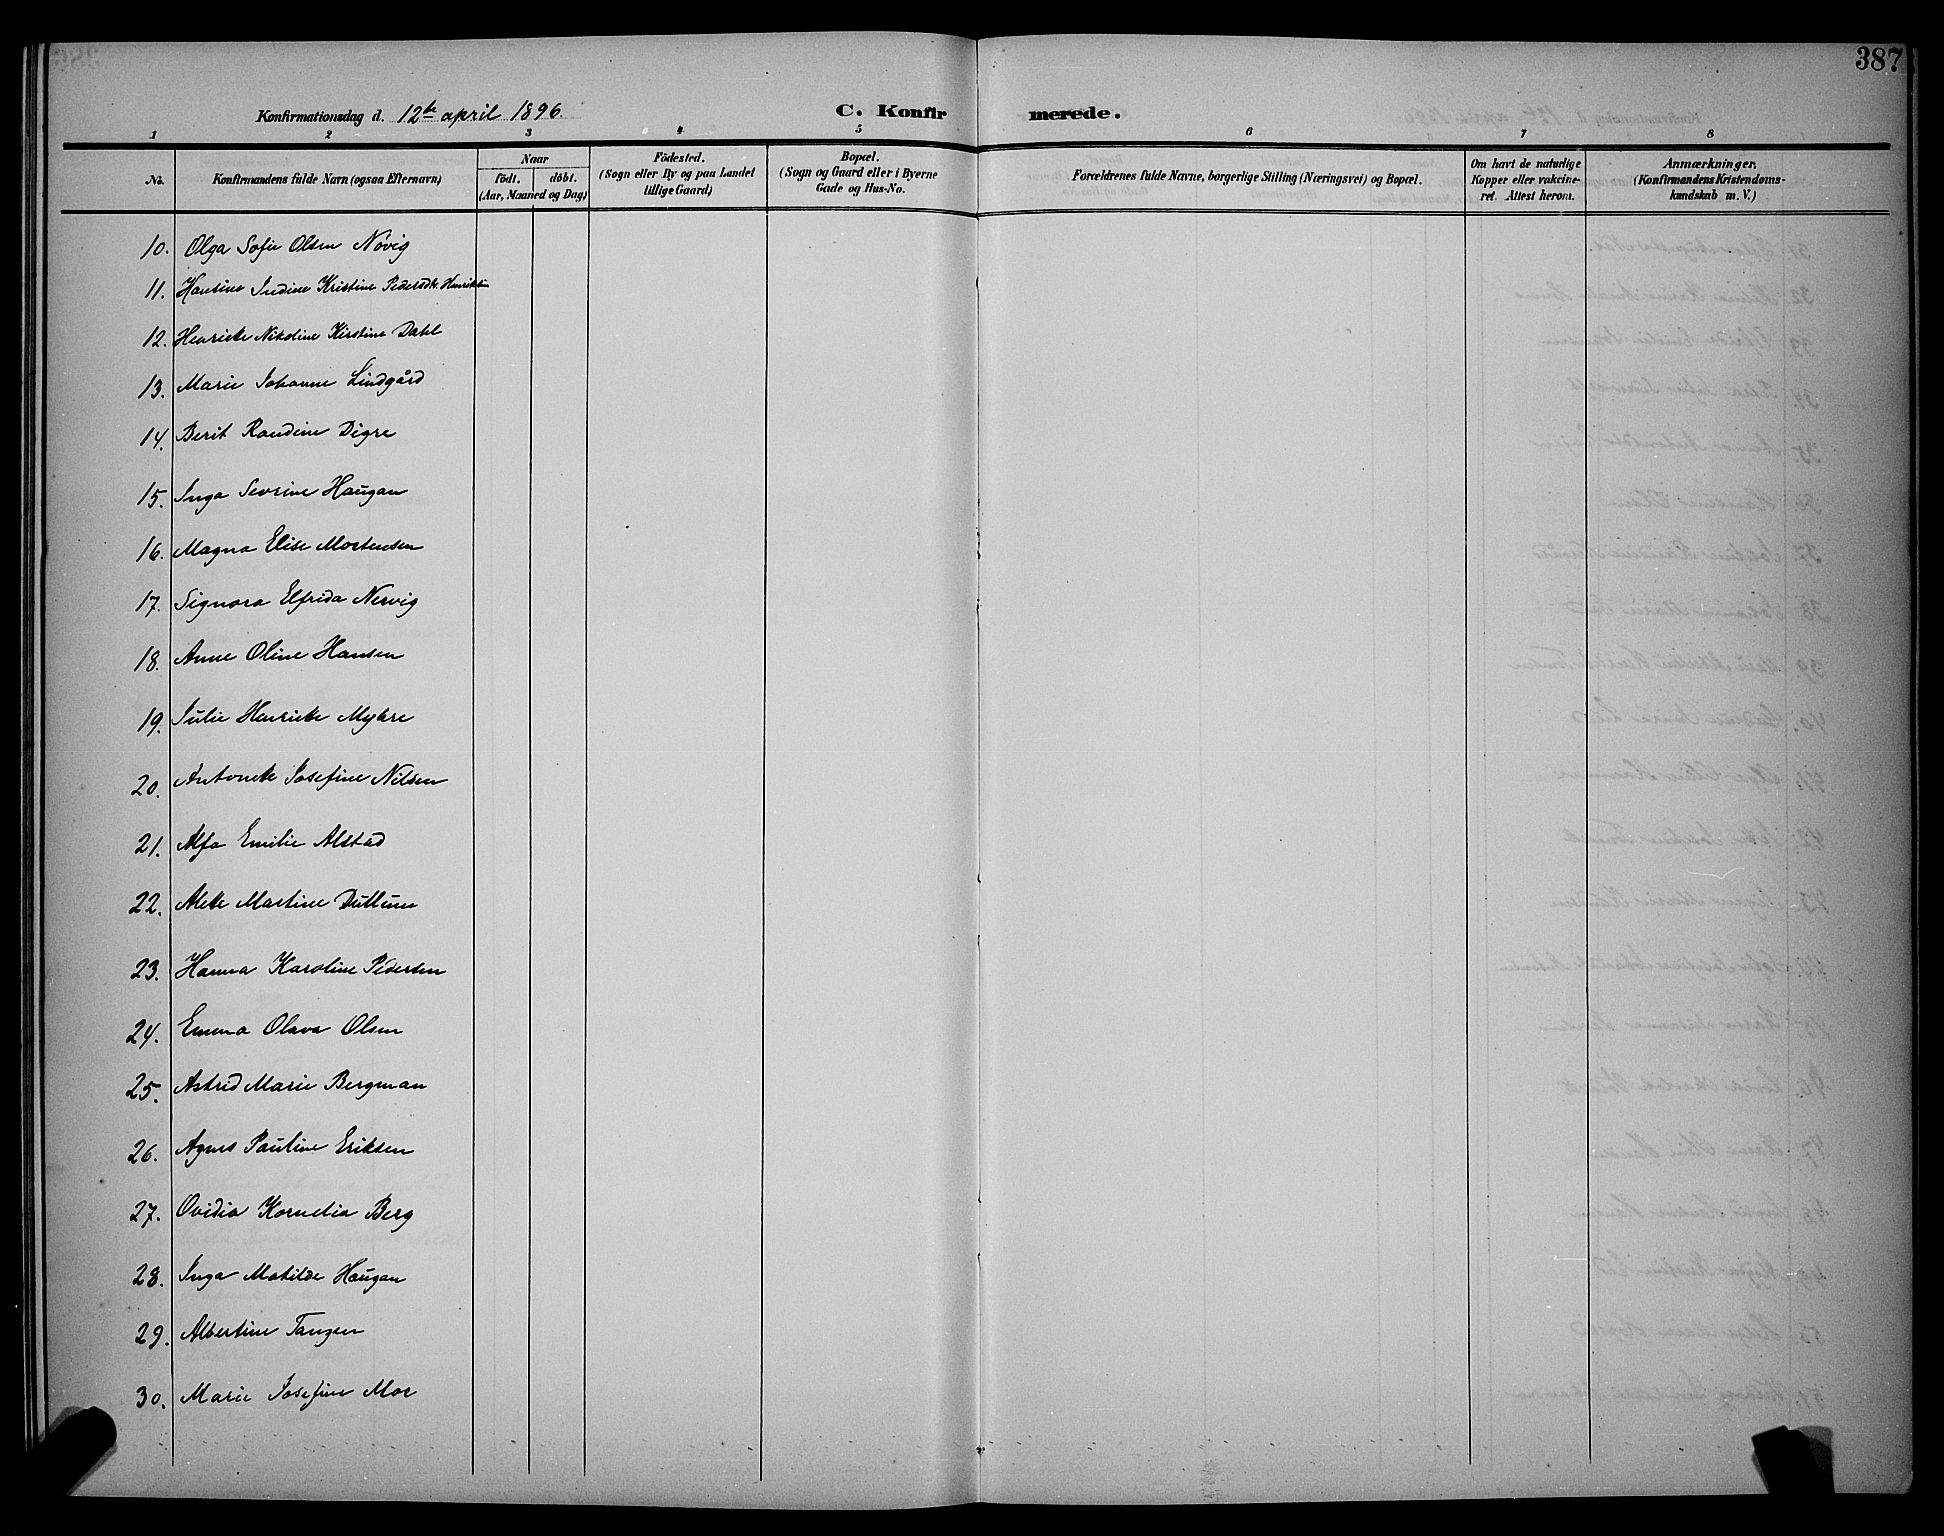 387
Konfirmationsdag d. 12te april 1896.
C. Konfirmerede.
1 2 3 4 5 6 7 8
No.
Konfirmandens fulde Navn (ogsaa Efternavn)
Naar
födt. döbt.
(Aar, Maaned og Dag)
Födested.
(Sogn eller By og paa Landet
tillige Gaard)
Bopæl.
(Sogn og Gaard eller i Byerne
Gade og Hus-No.
Forældrenes fulde Navne, borgerlige Stilling (Næringsvei) og Bopæl.
Om havt de naturlige
Kopper eller vakcine-
ret. Attest herom.
Anmærkninger,
(Konfirmandens Kristendoms-
kundskab m. V.)
10. Olga Sofie Olsen Növig
11. Hansine Indine Kristine Pedersdtr. Henriksen
12. Henriette Nikoline Kirstine Dahl
13. Marie Johanne Lindgård
14. Berit Randine Digre
15. Inga Sevrine Haugan
16. Magna Elise Mortensen
17. Signora Elfrida Nervig
18. Anne Oline Hansen
19. Julie Henriette Myhre
20. Antonette Josefine Nilsen
21. Alfa Emilie Alstad
22. Alette Martine Dullum
23. Hanna Karoline Pedersen
24. Emma Olava Olsen
25. Astrid Marie Bergman
26. Agnes Pauline Eriksen
27. Ovidia Kornelia Berg
28. Inga Matilde Haugan
29. Albertine Tangen
30. Marie Josefine Moe